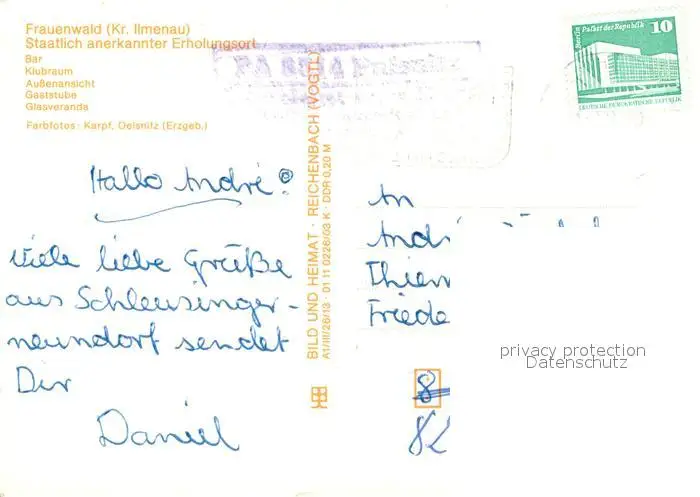 Frauenwald (Kr. Ilmenau)
Staatlich anerkannter Erholungsort
Bar
Klubraum
Außenansicht
Gaststube
Glasveranda
Farbfotos: Karpf, Oelsnitz (Erzgeb.)
Hallo André!
Viele liebe Grüße
aus Schleusinger-
neundorf sendet
Dir
Daniel
BILD UND HEIMAT · REICHENBACH (VOGTL)
A1/III/26/13 · 01 11 0226/03 K · DDR 0,20 M
Berlin Palast der Republik
10
DEUTSCHE DEMOKRATISCHE REPUBLIK
An
Thiem
Friede
privacy protection
Datenschutz
8